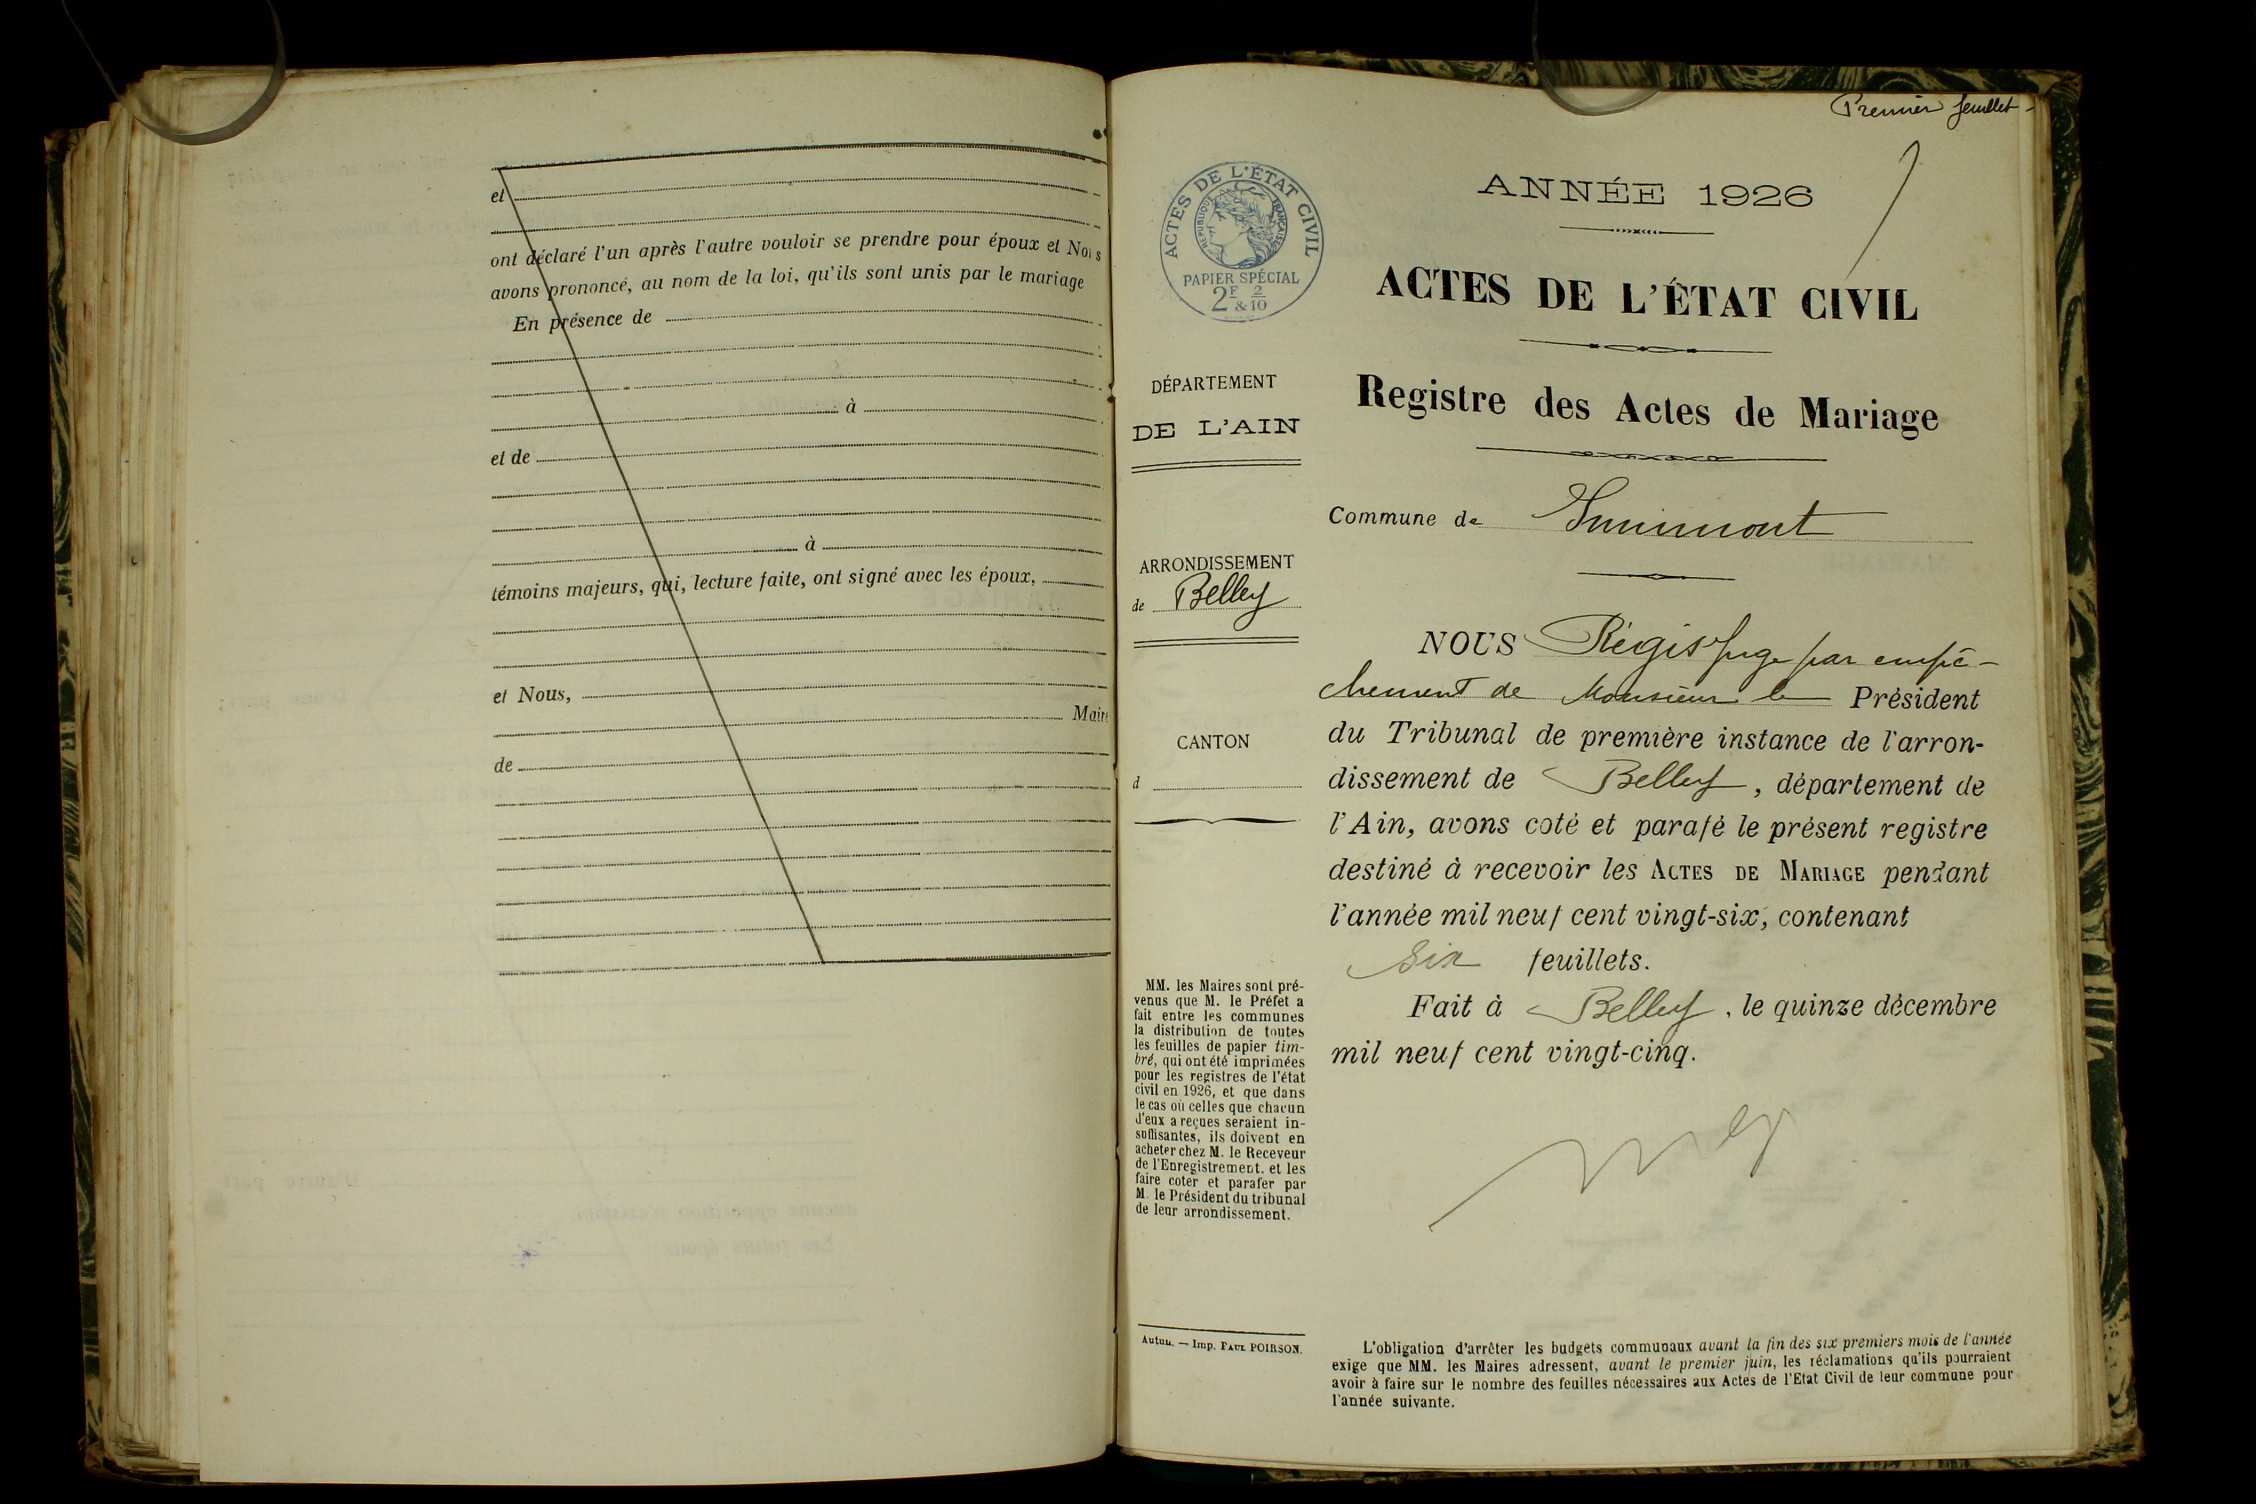 et
ont déclaré l'un après l'autre vouloir se prendre pour époux et Nous
avons prononcé, au nom de la loi, qu'ils sont unis par le mariage
En présence de
à
et de
à
témoins majeurs, qui, lecture faite, ont signé avec les époux,
et Nous,
Maire
de
Premier feuillet
ACTES DE L'ÉTAT CIVIL
RÉPUBLIQUE FRANÇAISE
PAPIER SPÉCIAL
2F & 2/10
DÉPARTEMENT
DE L'AIN
ARRONDISSEMENT
de Belley
CANTON
d
MM. les Maires sont pré-
venus que M. le Préfet a
fait entre les communes
la distribution de toutes
les feuilles de papier tim-
bré, qui ont été imprimées
pour les registres de l'état
civil en 1926, et que dans
le cas où celles que chacun
d'eux a reçues seraient in-
suffisantes, ils doivent en
acheter chez M. le Receveur
de l'Enregistrement. et les
faire coter et parafer par
M. le Président du tribunal
de leur arrondissement.
Autun. — Imp. PAUL POIRSON.
ANNÉE 1926
ACTES DE L'ÉTAT CIVIL
Registre des Actes de Mariage
Commune de Innimont
NOUS Régis Juge par empê-
chement de Monsieur le Président
du Tribunal de première instance de l'arron-
dissement de Belley, département de
l'Ain, avons coté et parafé le présent registre
destiné à recevoir les ACTES DE MARIAGE pendant
l'année mil neuf cent vingt-six, contenant
six feuillets.
Fait à Belley, le quinze décembre
mil neuf cent vingt-cinq.
L'obligation d'arrêter les budgets communaux avant la fin des six premiers mois de l'année
exige que MM. les Maires adressent, avant le premier juin, les réclamations qu'ils pourraient
avoir à faire sur le nombre des feuilles nécessaires aux Actes de l'Etat Civil de leur commune pour
l'année suivante.